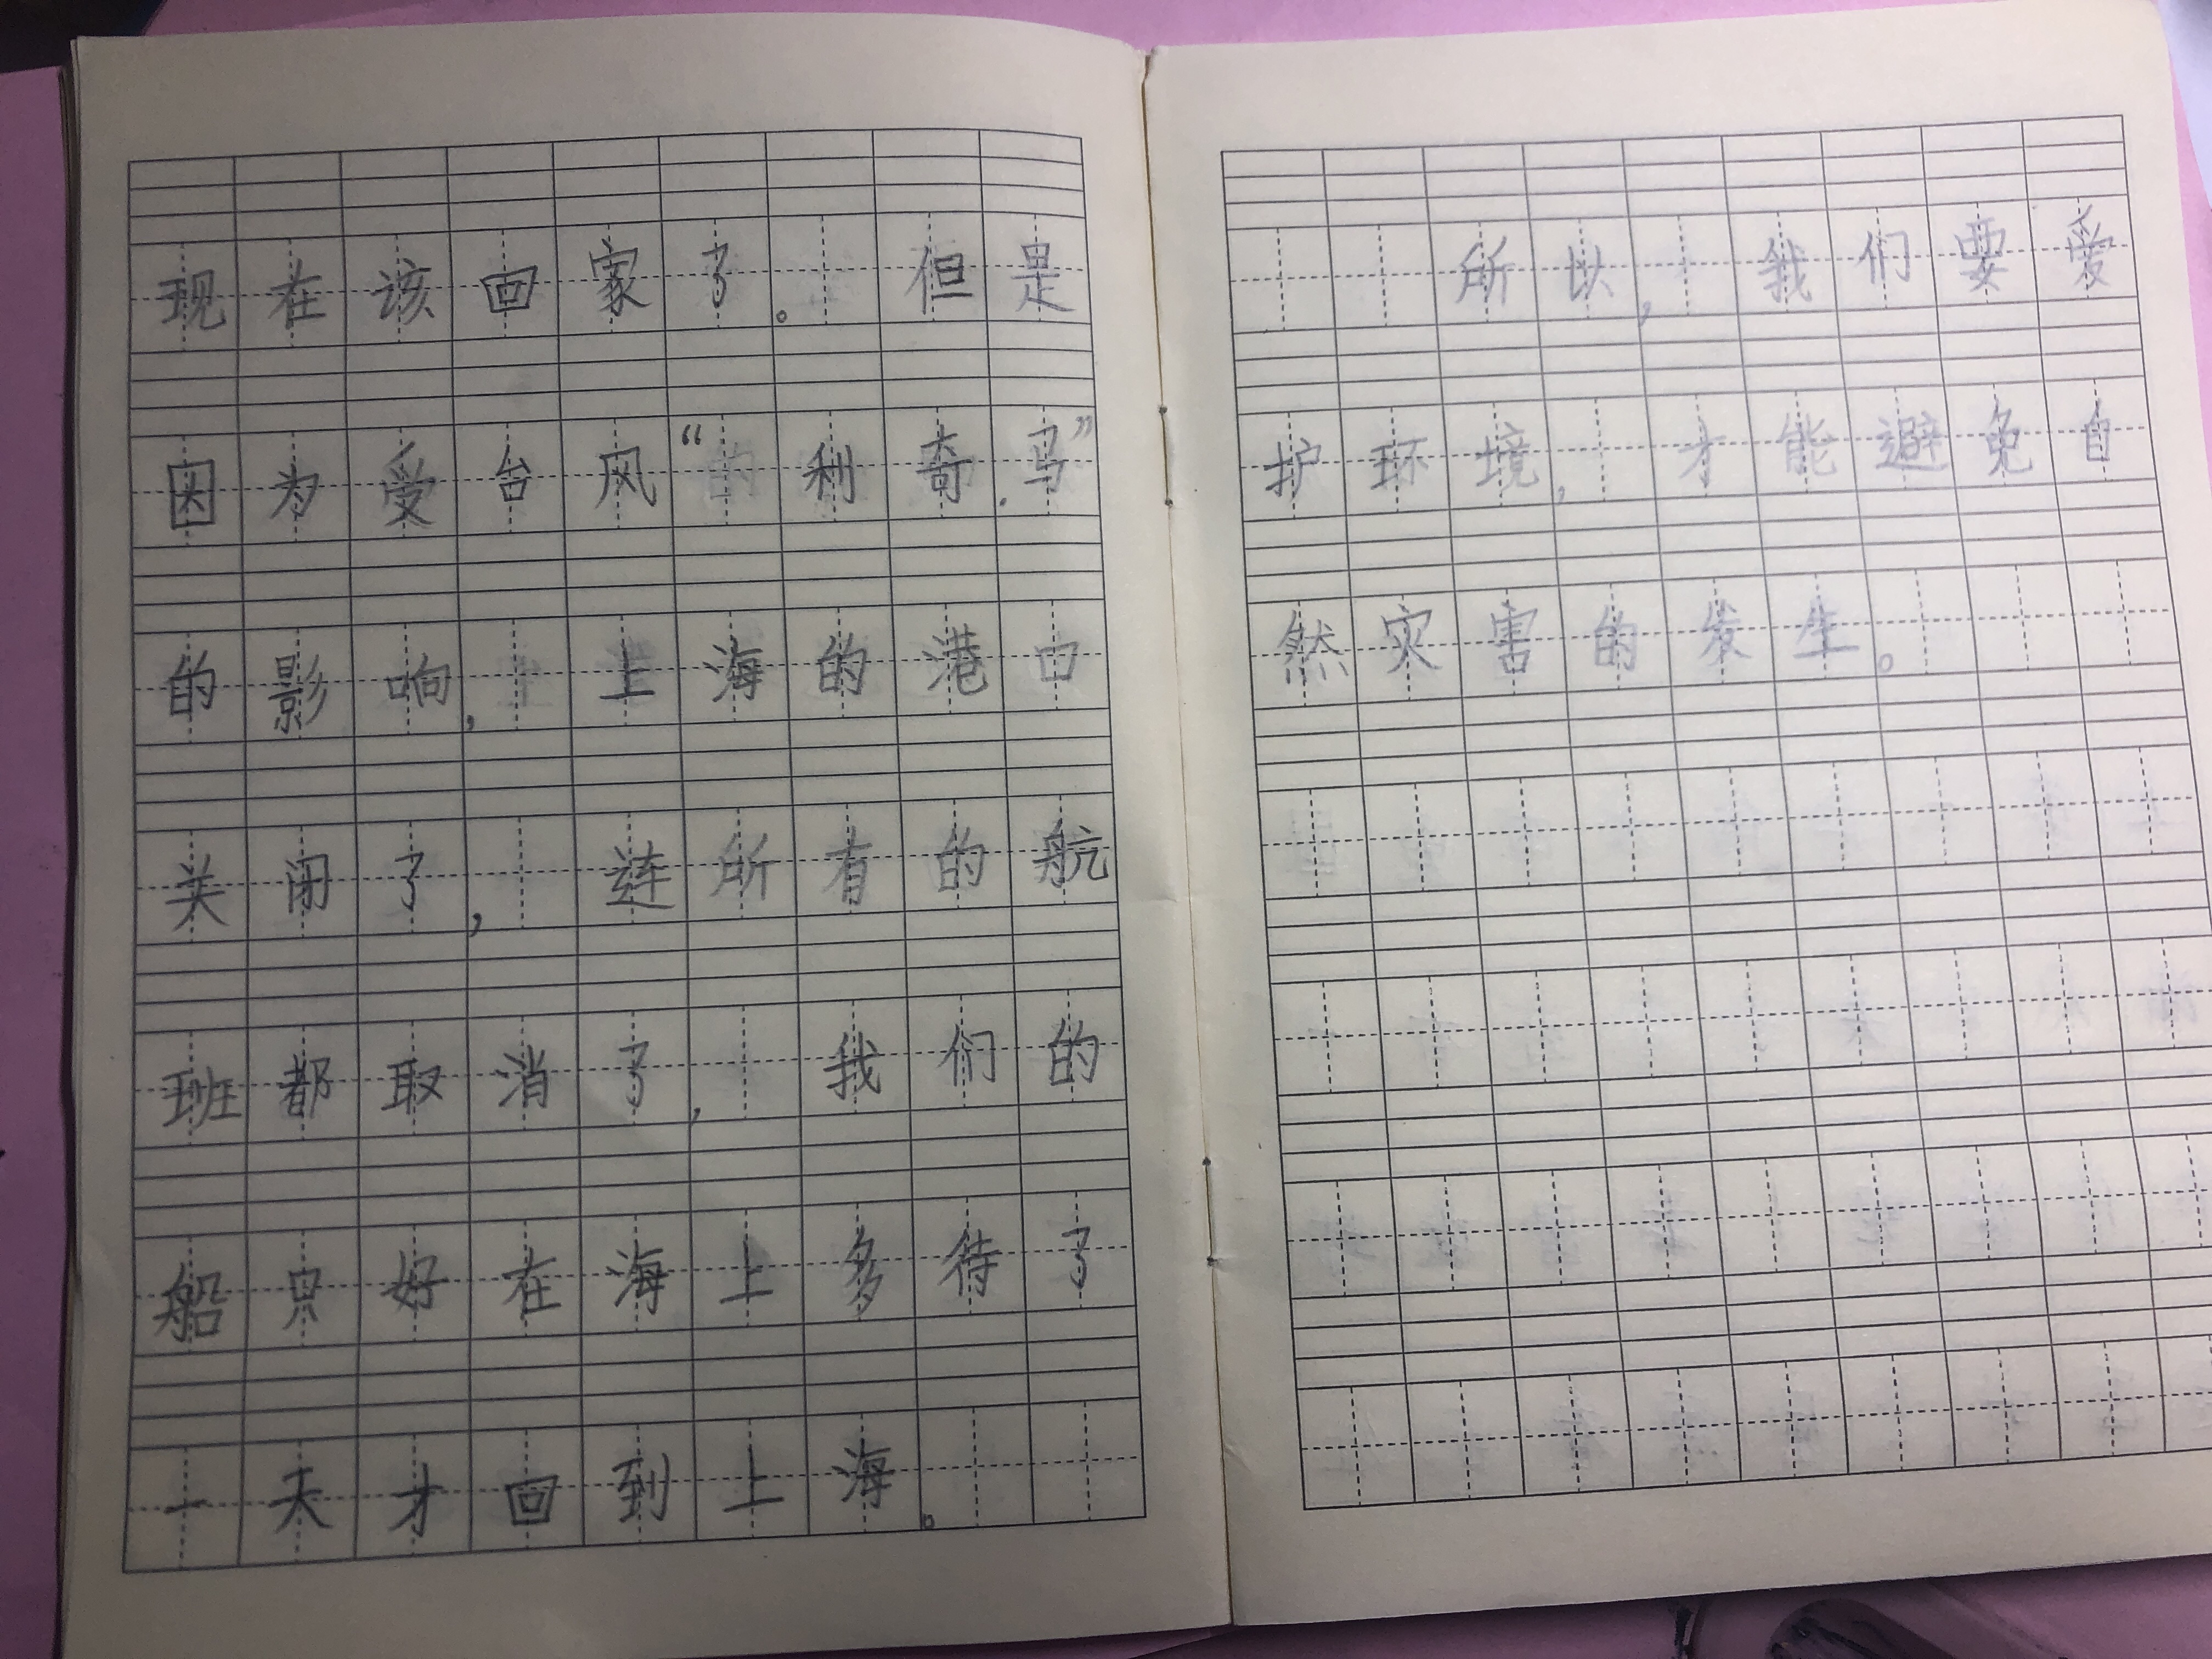 现在该回家了。但是
因为受台风“利奇马”
的影响，上海的港口
关闭了，连所有的航
班都取消了，我们的
船只好在海上多待了
一天才回到上海。
所以，我们要爱
护环境，才能避免自
然灾害的发生。